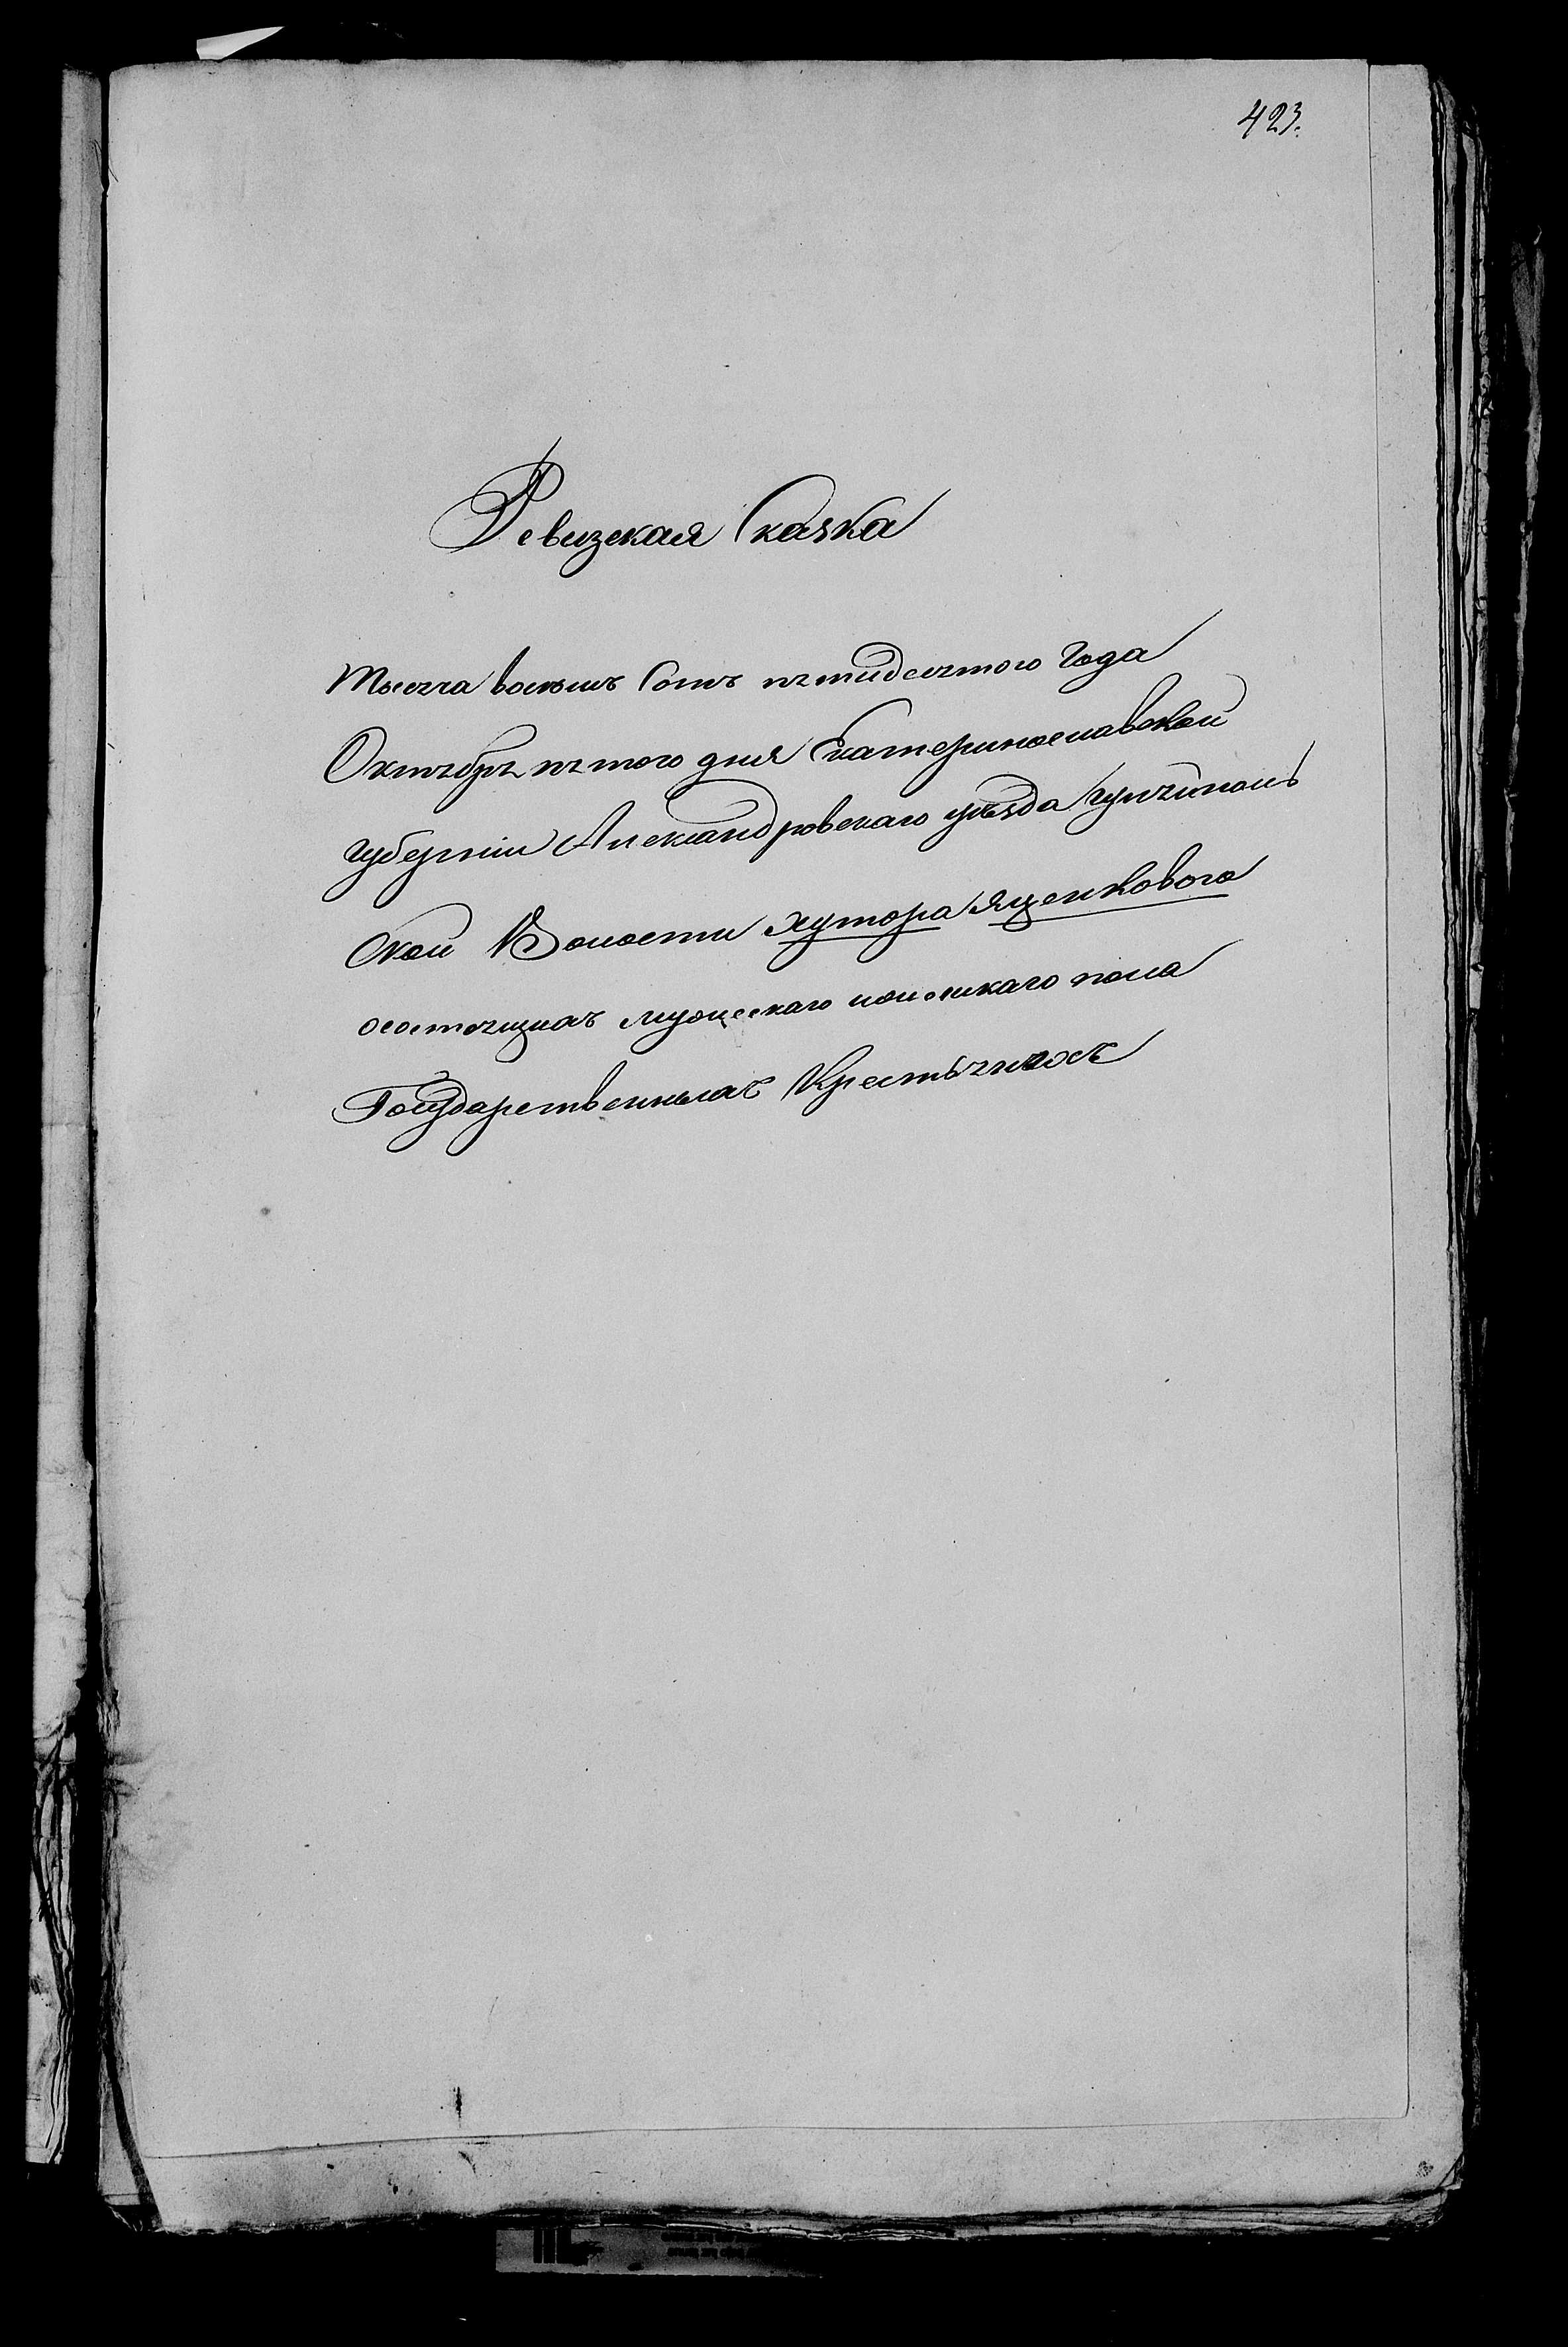 423.
Ревизская Сказка
Тысяча восемь Сотъ пятидесятого Года
Октября пятого дня Екатеринославской
губерніи Александровскаго уѣзда
Ской Волости хутора Ященкового
осостоящихъ мужескаго иженскаго пола
Государственныхъ Крестьянахъ